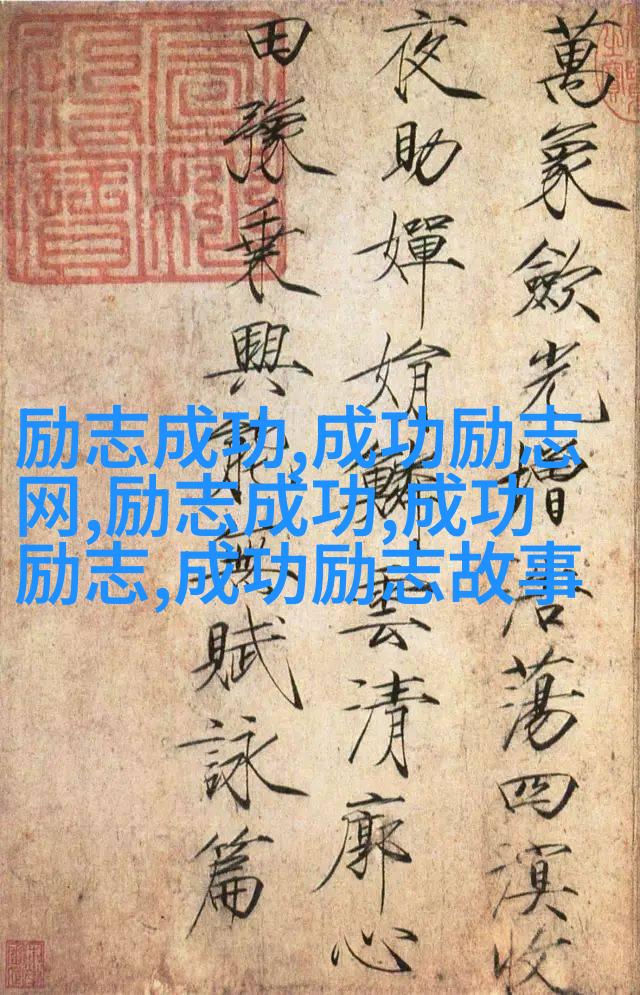 萬象歛光增浩蕩四溟收
夜助嬋娟鱗雲清廓心
田豫乘興能無賦詠篇
励志成功,成功励志
网,励志成功,成功
励志,成功励志故事